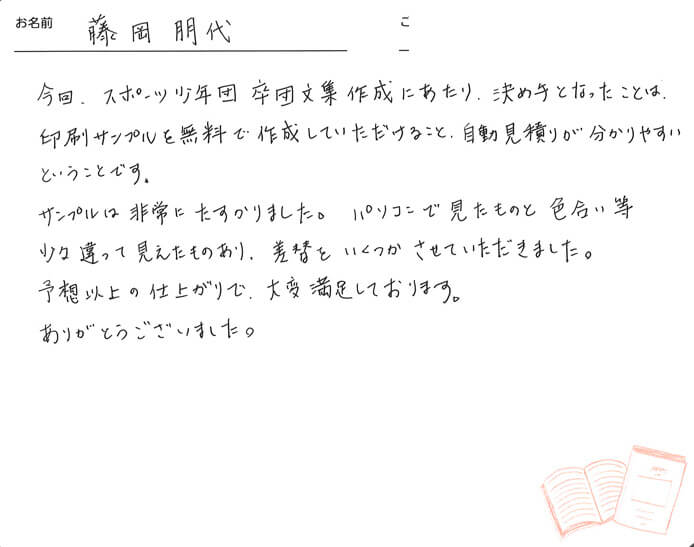 お名前 藤岡朋代
今回、スポーツ少年団 卒団文集 作成にあたり、決め手となったことは、
印刷サンプルを無料で作成していただけること、自動見積りが分かりやすい
ということです。
サンプルは非常にたすかりました。パソコンで見たものと色合い等
少々違って見えたものあり、差替をいくつかさせていただきました。
予想以上の仕上がりで、大変満足しております。
ありがとうございました。